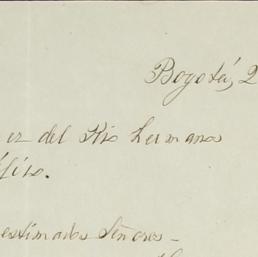 Bogotá, 2
er del Rio hermanos
estimados Señores-